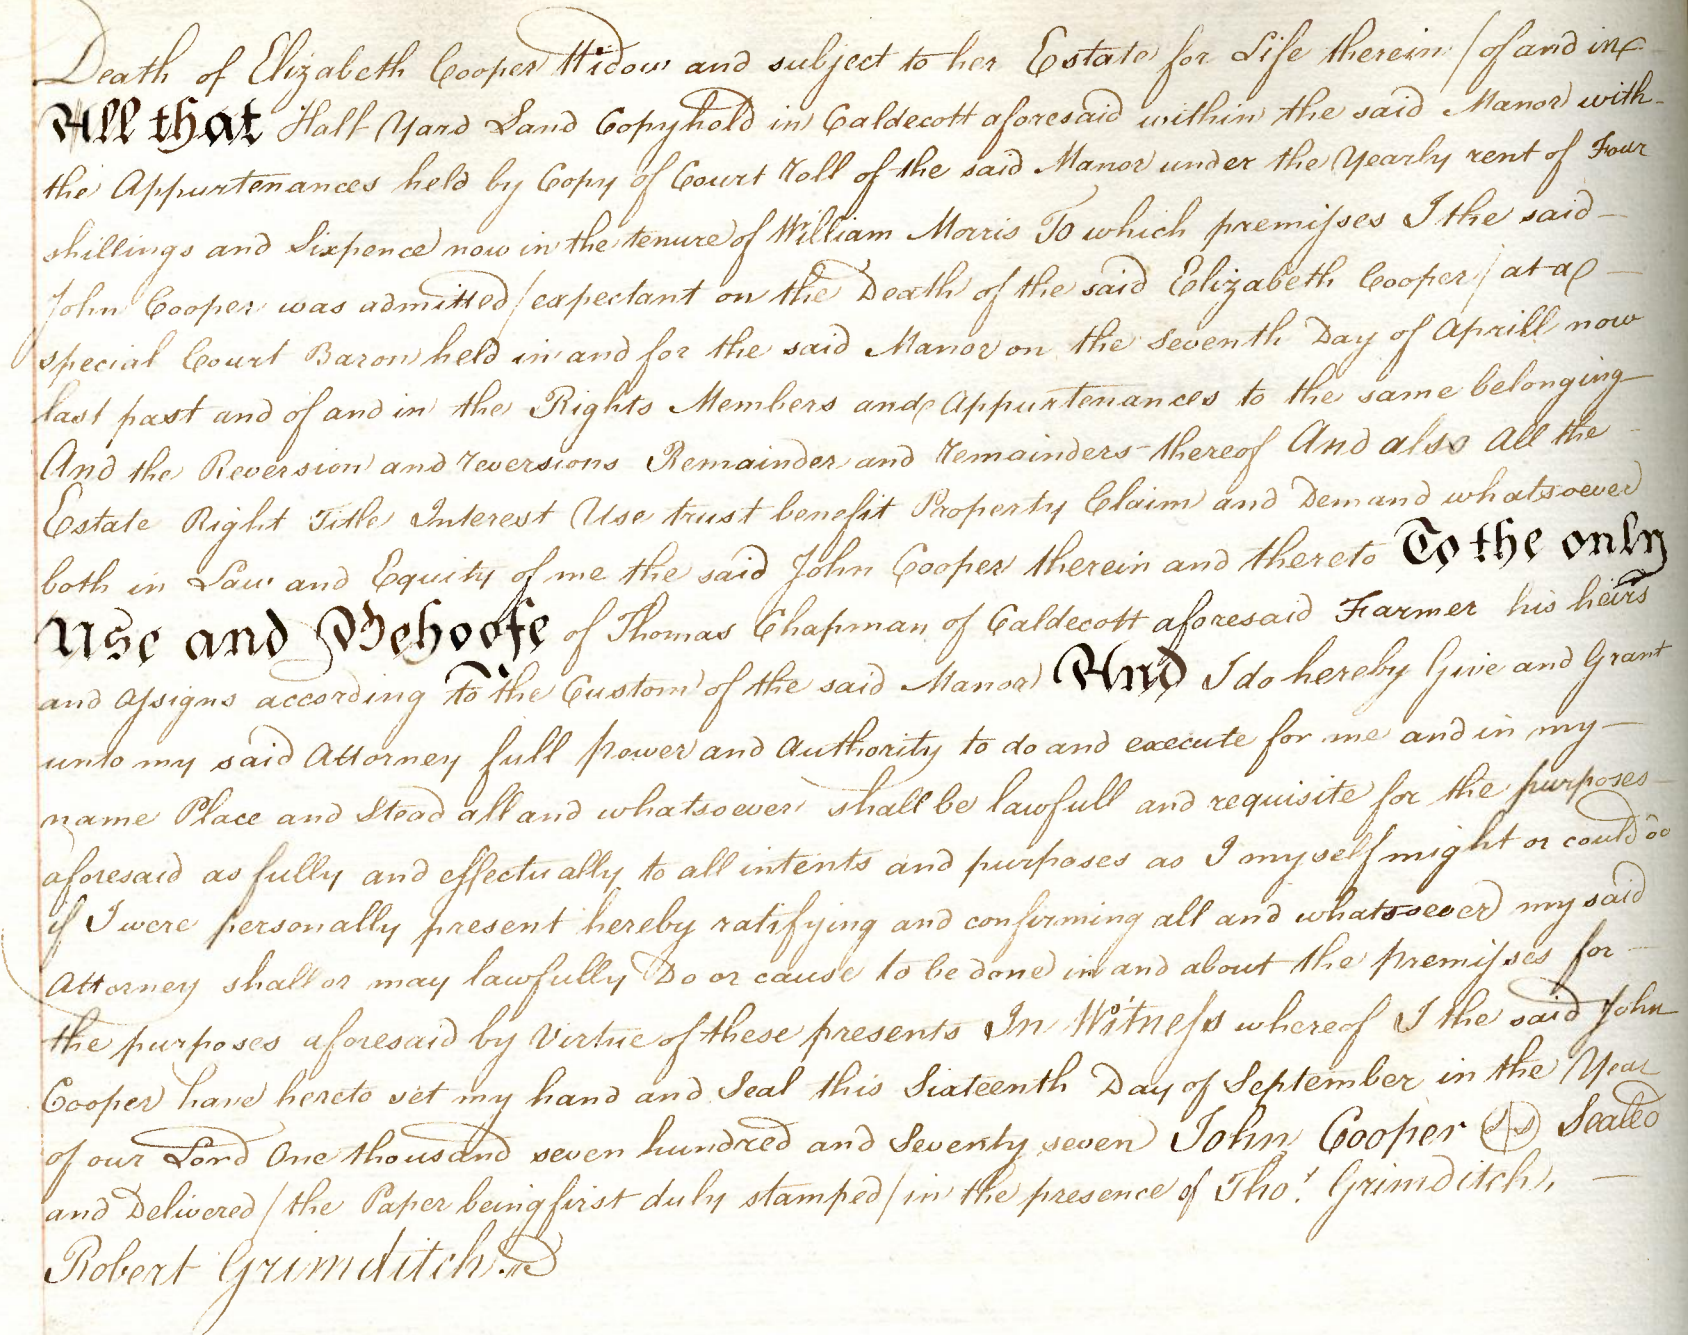 Death of Elizabeth Cooper Widow and subject to her Estate for Life therein / of and in
All that Half Yard Land Copyhold in Caldecott aforesaid within the said Manor with
the Appurtenances held by Copy of Court roll of the said Manor under the Yearly rent of Four
shillings and Sixpence now in the tenure of William Morris To which premisses I the said
John Cooper was admitted / expectant on the Death of the said Elizabeth Cooper / at a
special Court Baron held in and for the said Manor on the Seventh Day of Aprill now
last past and of and in the Rights Members and Appurtenances to the same belonging
And the Reversion and reversions Remainder and remainders thereof And also All the
Estate Right Title Interest Use trust benefit Property Claim and Demand whatsoever
both in Law and Equity of me the said John Cooper therein and thereto To the only
Use and Behoofe of Thomas Chapman of Caldecott aforesaid Farmer his heirs
and assigns according to the Custom of the said Manor And I do hereby Give and Grant
unto my said Attorney full power and Authority to do and execute for me and in my
name Place and Stead all and whatsoever shall be lawfull and requisite for the purposes
aforesaid as fully and effectually to all intents and purposes as I myself might or could do
if I were personally present hereby ratifying and confirming all and whatsoever my said
Attorney shall or may lawfully Do or cause to be done in and about the premisses for
the purposes aforesaid by Virtue of these presents In Witness whereof I the said John
Cooper have hereto set my hand and Seal this Sixteenth Day of September in the Year
of our Lord One thousand seven hundred and Seventy seven John Cooper LS Sealed
and Delivered / the Paper being first duly stamped / in the presence of Thos. Grimditch,
Robert Grimditch.